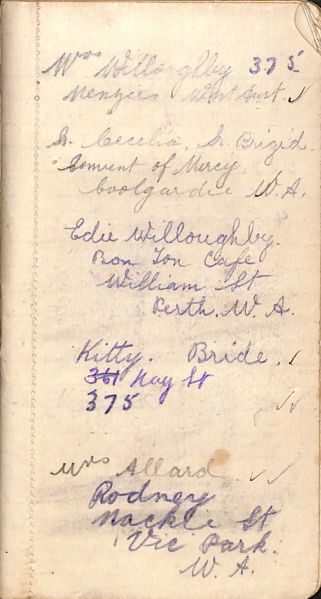 Mrs Willoughby 375
Menzies West Aust.
S. Cecelia, S. Brigid.
Convent of Mercy
Coolgardie W.A.
Edie Willoughby.
Bon Ton Cafe
William St
Perth. W.A.
Kitty. Bride.
361 Hay St
375
Mrs Allard
Rodney
Mackie St
Vic Park.
W.A.